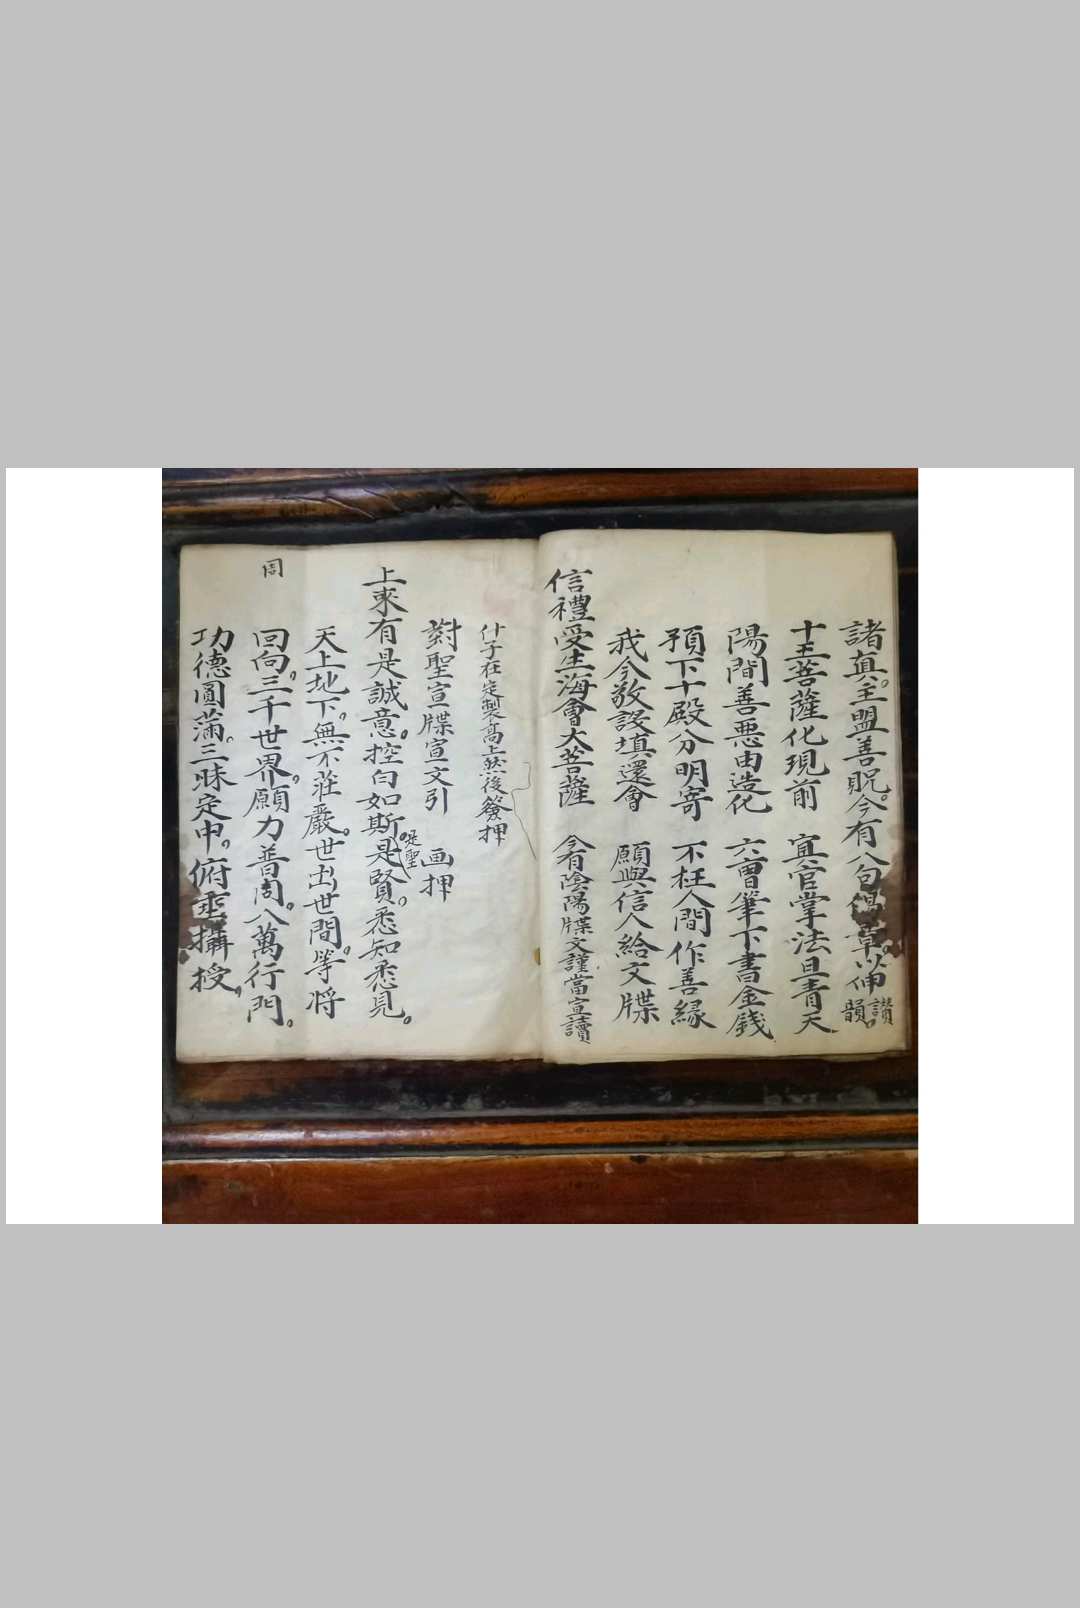 諸真。主盟善貺。今有八句偈章。以伸讃韻。
十王菩薩化現前 冥官掌法旦青天
陽間善悪由造化 六曹筆下書金錢
預下十殿分明寄 不枉人間作善緣
我今敬設填還會 願與信人給文牒
信禮受生海會大菩薩 今有陰陽牒文謹當宣讀
什子在定製高上然後簽押
對聖宣牒宣文引 画押
上來有是誠意。控白如斯。是聖是賢。悉知悉見。
天上地下。無不莊嚴。世出世間。等将
回向。三千世界。願力普周。八萬行門。
周
功德圓蒲。三昧定中。俯垂攝授。